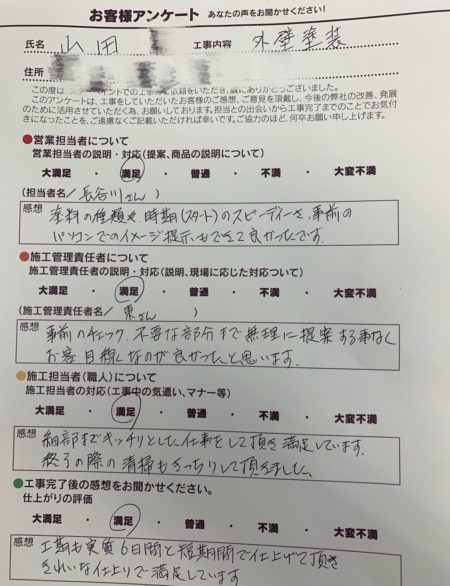 お客様アンケート あなたの声をお聞かせください!
氏名 山田 工事内容 外壁塗装
住所
この度は、ペイントでの工事のご依頼をいただき、誠にありがとうございました。
このアンケートは、工事をしていただいたお客様のご感想、ご意見を頂戴し、今後の弊社の改善、発展
のために活用させていただく為、お願いしております。担当との出会いから工事完了までのことでお気付
きになったことを、ご遠慮なくご記載いただければ幸いです。ご協力のほど、何卒お願い申し上げます。
●営業担当者について
営業担当者の説明・対応(提案、商品の説明について)
大満足 ・ 満足 ・ 普通 ・ 不満 ・ 大変不満
(担当者名/ 長谷川さん )
感想 塗料の種類や時期(スタート)のスピーディーさ、事前の
パソコンでのイメージ提示もできて良かったです。
●施工管理責任者について
施工管理責任者の説明・対応(説明、現場に応じた対応ついて)
大満足 ・ 満足 ・ 普通 ・ 不満 ・ 大変不満
(施工管理責任者名/ 東さん )
感想 事前のチェック、不要な部分まで無理に提案する事なく
お客目線なのが良かったと思います。
●施工担当者(職人)について
施工担当者の対応(工事中の気遣い、マナー等)
大満足 ・ 満足 ・ 普通 ・ 不満 ・ 大変不満
感想 細部までキッチリとした仕事をして頂き満足しています。
終了の際の清掃もきっちりして頂きました。
●工事完了後の感想をお聞かせください。
仕上がりの評価
大満足 ・ 満足 ・ 普通 ・ 不満 ・ 大変不満
感想 工期も実質6日間と短期間で仕上げて頂き
きれいな仕上りで満足しています